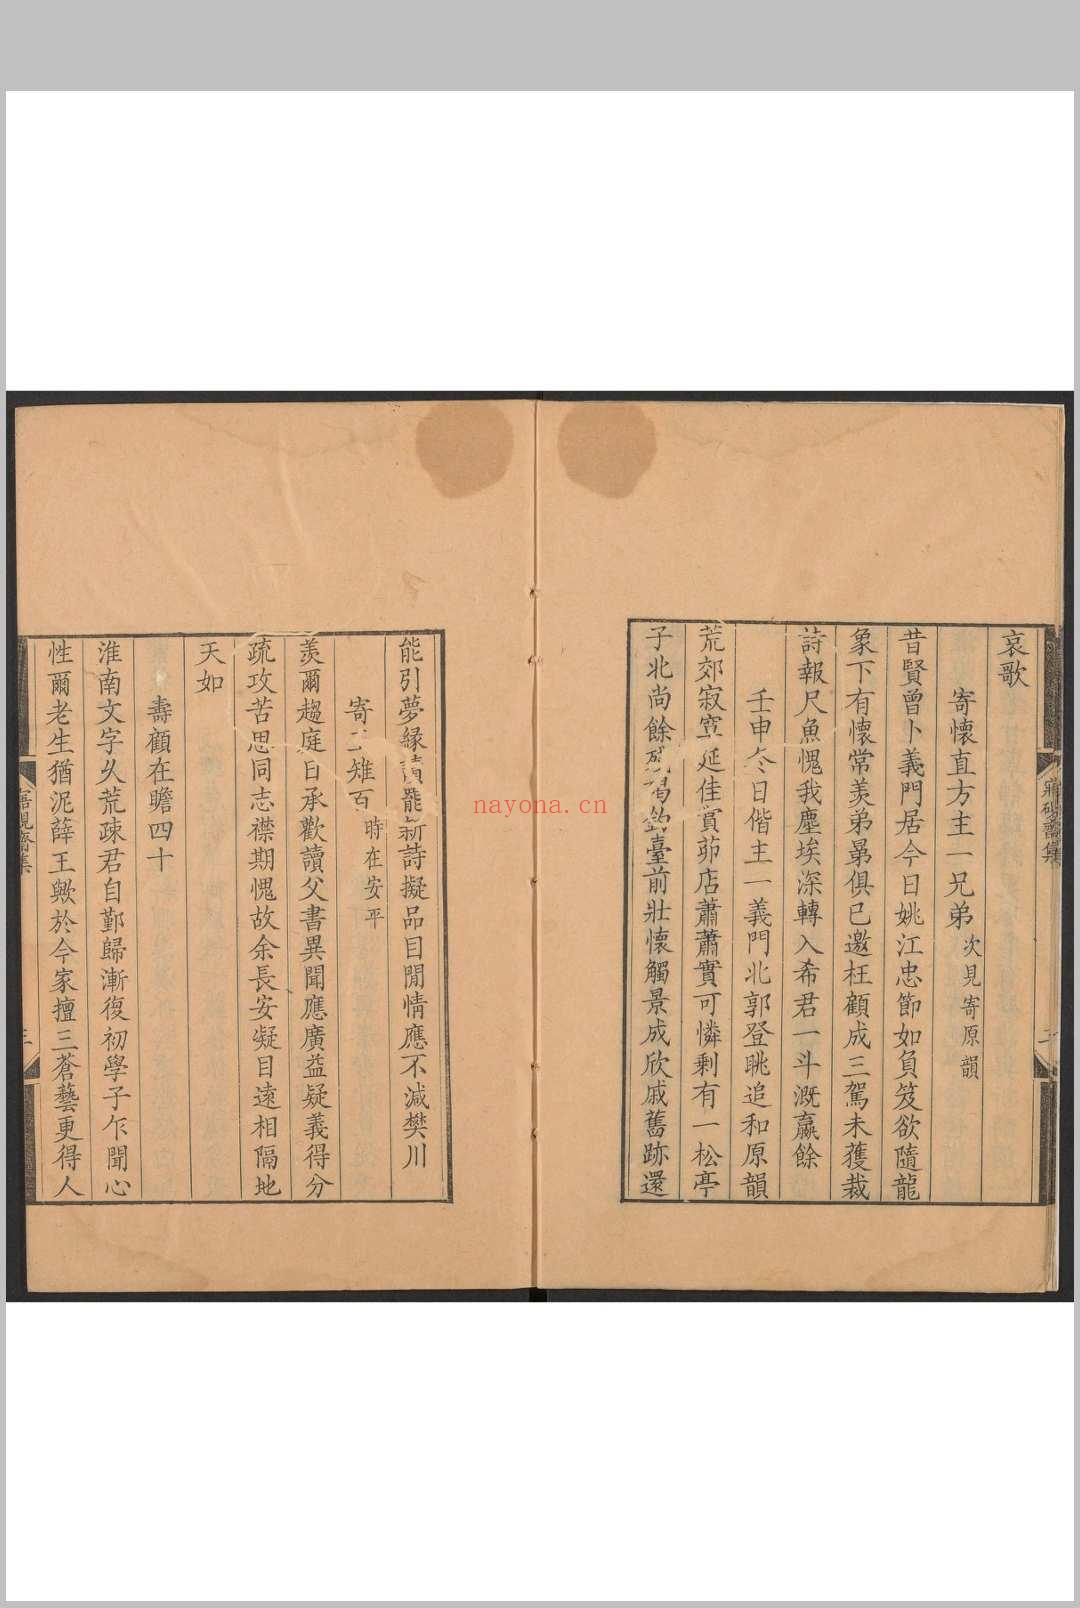 哀歌
寄懷直方主一兄弟 次見寄原韻
昔賢曾卜義門居今日姚江忠節如負笈欲隨龍
象下有懷常羨弟晜俱已邀枉顧成三駕未獲裁
詩報尺魚愧我塵埃深轉入希君一斗溉羸餘
壬申冬日偕主一義門北郭登眺追和原韻
荒郊寂寞延佳賞茆店蕭蕭實可憐剩有一松亭
子北尚餘碣釣臺前壯懷觸景成欣戚舊跡還
能引夢緣讀罷新詩擬品目閒情應不減樊川
寄王雉百 時在安平
羨爾趨庭日承歡讀父書異聞應廣益疑義得分
疏攻苦思同志襟期愧故余長安凝目遠相隔地
天如
壽顧在瞻四十
淮南文字久荒疎君自鄞歸漸復初學子乍聞心
性爾老生猶泥薛王歟於今家擅三蒼藝更得人
nayona.cn